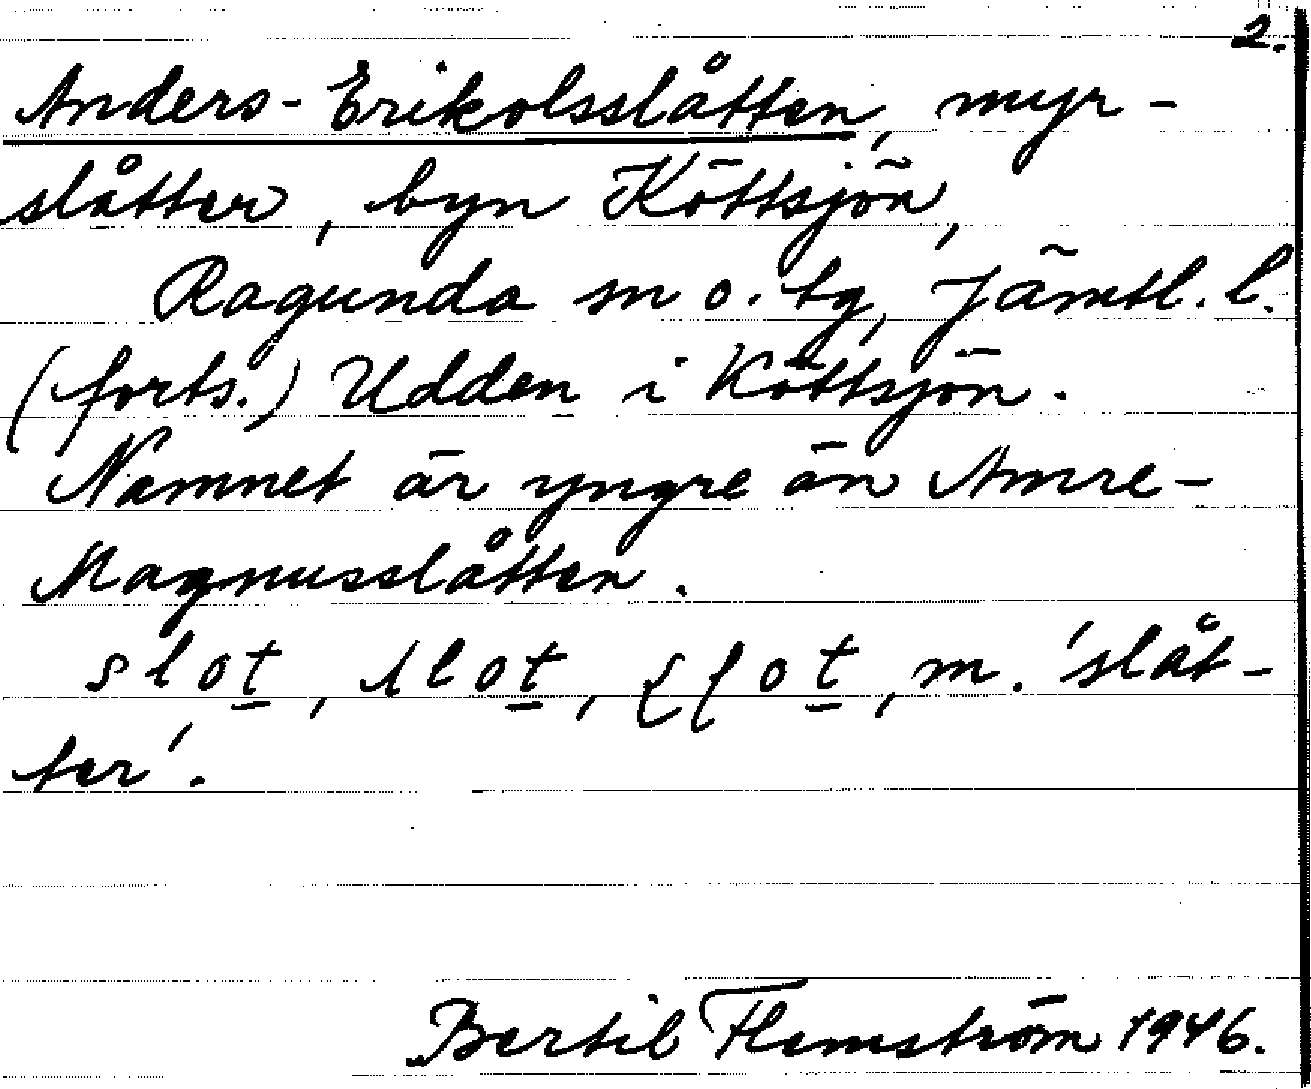 2.
Anders-Erikolsslåtten, myr-
slåtter, byn Köttsjön,
Ragunda sn o. tg, Jämtl. l.
(forts.) Udden i Köttsjön.
Namnet är yngre än Amre-
Magnusslåtten.
slot, slot, m. 'slåt-
ter'.
Bertil Flemström 1946.